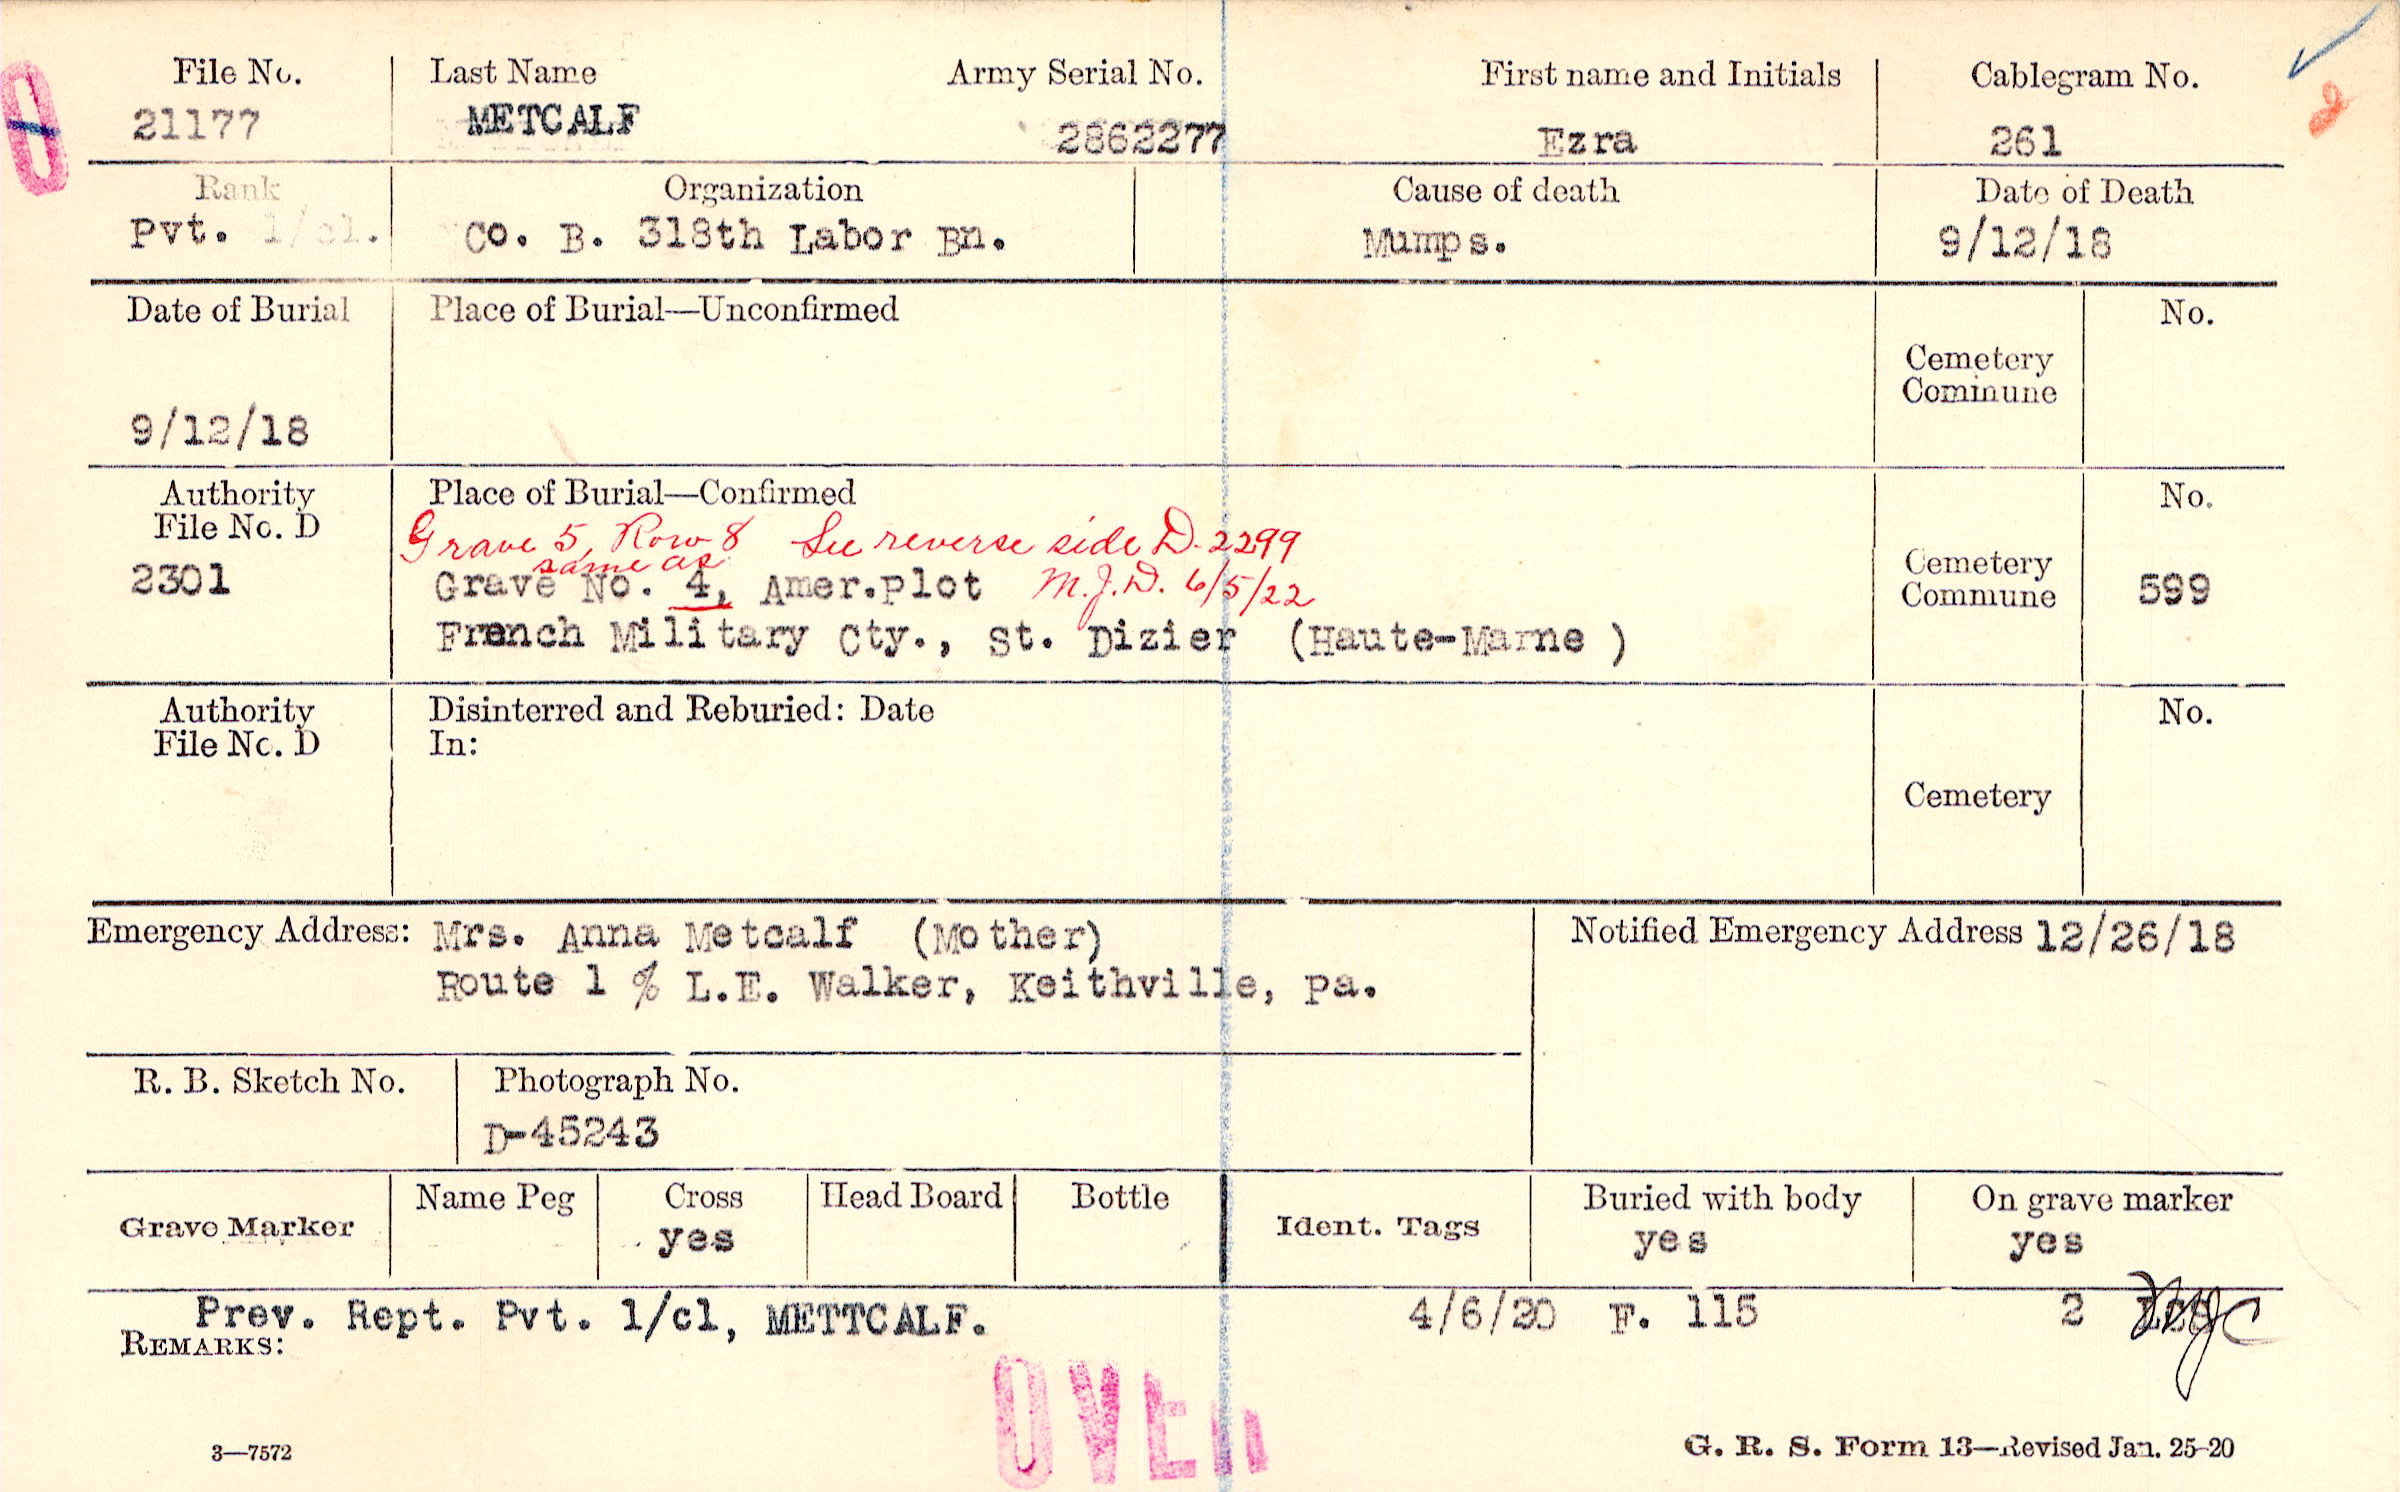 File No. Last Name Army Serial No. First name and Initials Cablegram No.
21177 METCALF 2862277 Ezra 261
Rank Organization Cause of death Date of Death
Pvt. 1/cl. Co. B. 318th Labor Bn. Mumps. 9/12/18
Date of Burial Place of Burial—Unconfirmed No.
Cemetery
Commune
9/12/18
Authority Place of Burial—Confirmed No.
File No. D
Grave 5, Row 8 See reverse side D-2299
same as
2301 Grave No. 4, Amer.plot M.J.D. 6/5/22 Cemetery
Commune 599
French Military Cty., St. Dizier (Haute-Marne )
Authority Disinterred and Reburied: Date No.
File No. D In:
Cemetery
Emergency Address: Mrs. Anna Metcalf (Mother) Notified Emergency Address 12/26/18
Route 1 % L.E. Walker, Keithville, Pa.
R. B. Sketch No. Photograph No.
D-45243
Name Peg Cross Head Board Bottle Buried with body On grave marker
Grave Marker yes Ident. Tags yes yes
Prev. Rept. Pvt. 1/cl, METTCALF. 4/6/20 F. 115 2
REMARKS:
OVER
3—7572 G. R. S. Form 13—Revised Jan. 25-20